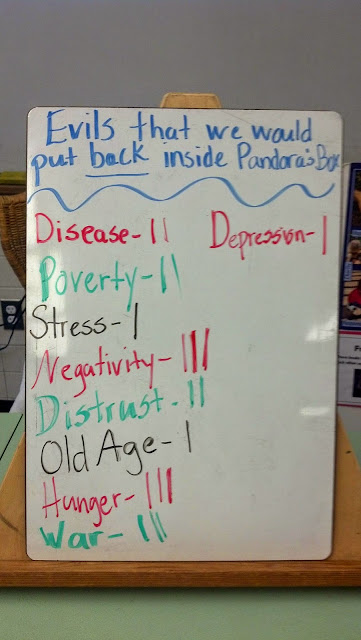 Evils that we would
put back inside Pandora's Box
Disease - ||
Depression - |
Poverty - ||
Stress - |
Negativity - |||
Distrust - ||
Old Age - |
Hunger - |||
War - |||